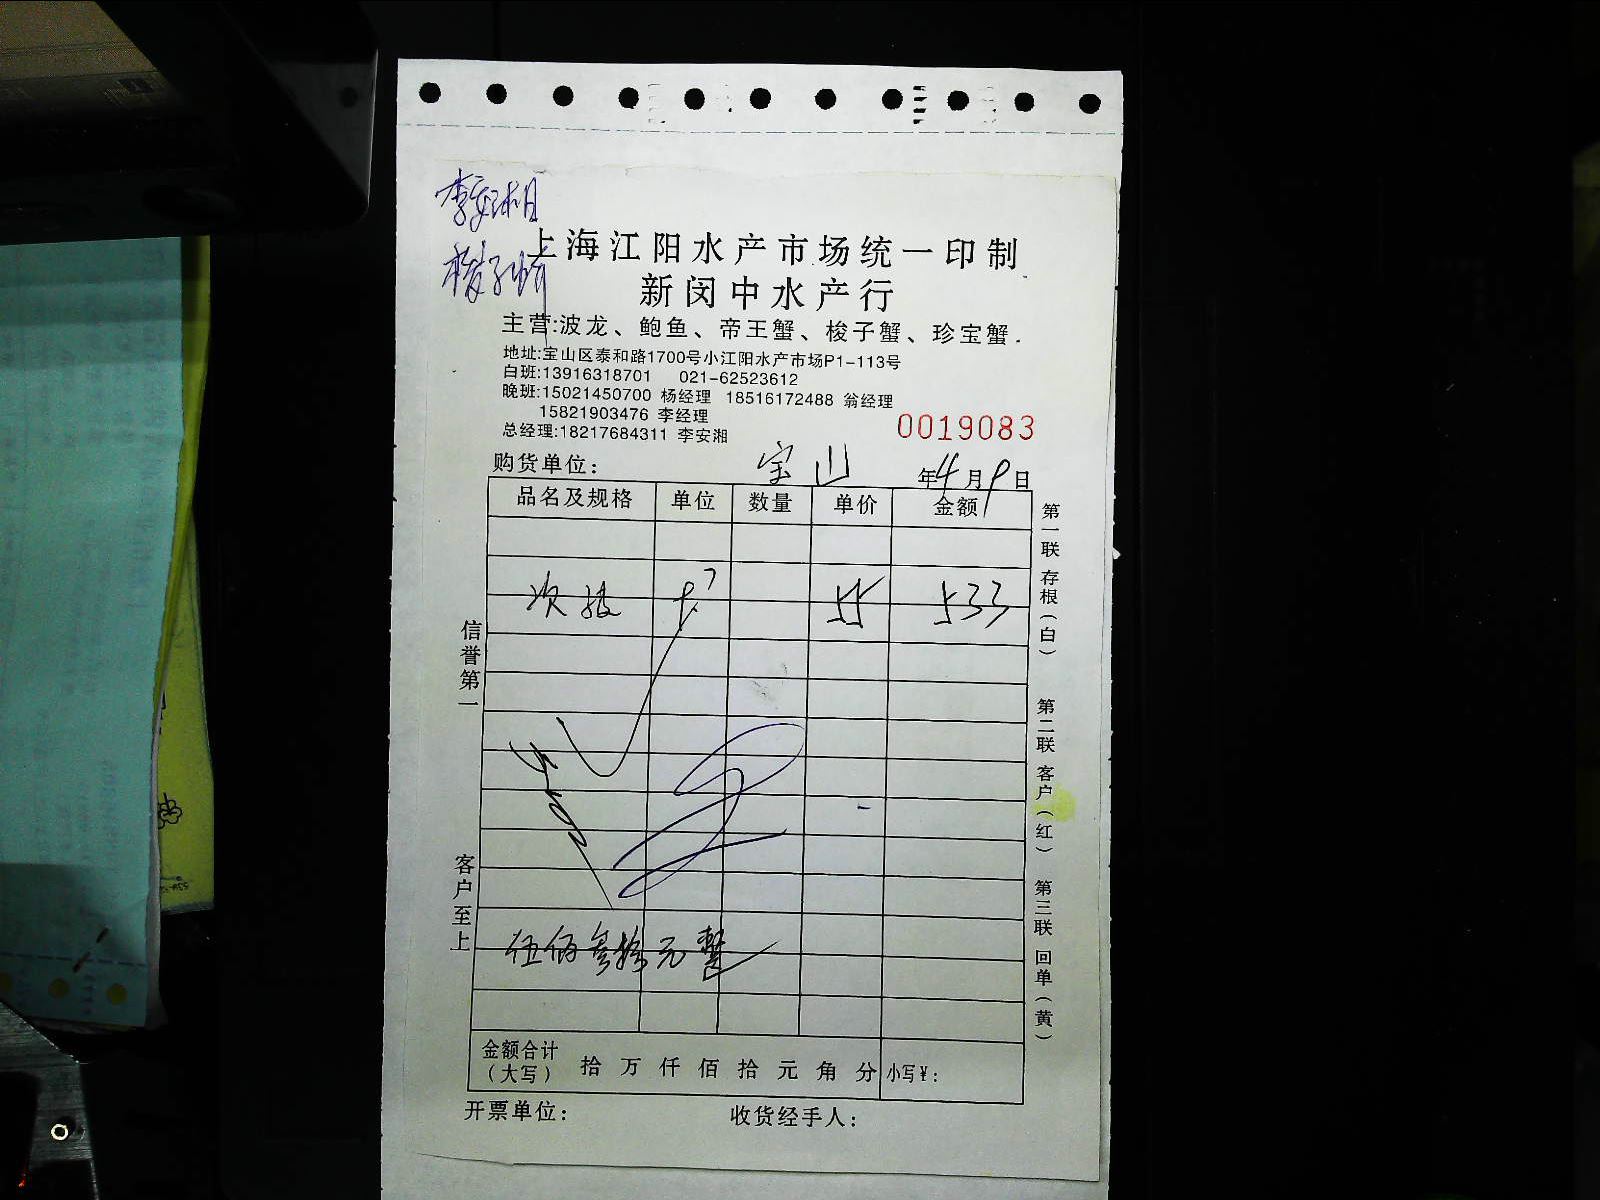 李安湘
梭子蟹
上海江阳水产市场统一印制
新闵中水产行
主营:波龙、鲍鱼、帝王蟹、梭子蟹、珍宝蟹.
地址:宝山区泰和路1700号小江阳水产市场P1-113号
白班:13916318701 021-62523612
晚班:15021450700 杨经理 18516172488 翁经理
15821903476 李经理
总经理:18217684311 李安湘
0019083
购货单位: 宝山 年4月9日
品名及规格 单位 数量 单价 金额
55 533
伍佰叁拾元整
金额合计(大写) 拾 万 仟 佰 拾 元 角 分 小写¥:
开票单位: 收货经手人:
信誉第一
客户至上
第一联 存根(白)
第二联 客户(红)
第三联 回单(黄)